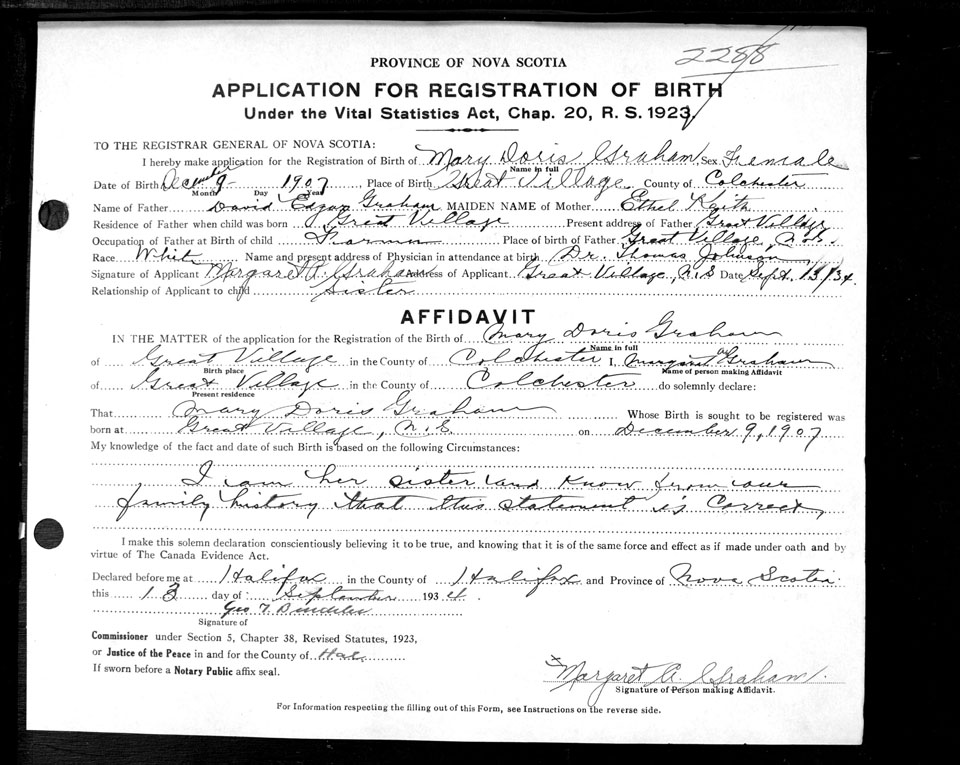 2288
PROVINCE OF NOVA SCOTIA
APPLICATION FOR REGISTRATION OF BIRTH
Under the Vital Statistics Act, Chap. 20, R. S. 1923
TO THE REGISTRAR GENERAL OF NOVA SCOTIA:
I hereby make application for the Registration of Birth of Mary Doris Graham Sex Female
Name in full
Date of Birth December 9 1907 Place of Birth Great Village County of Colchester
Month Day Year
Name of Father David Edgar Graham MAIDEN NAME of Mother Ethel Keith
Residence of Father when child was born Great Village Present address of Father Great Village
Occupation of Father at Birth of child Place of birth of Father Great Village, N.S.
Race White Name and present address of Physician in attendance at birth Dr. Thomas Johnson
Signature of Applicant Margaret A. Graham Address of Applicant Great Village, N.S Date Sept. 13/34.
Relationship of Applicant to child Sister
AFFIDAVIT
IN THE MATTER of the application for the Registration of the Birth of Mary Doris Graham
Name in full
of Great Village in the County of Colchester I, Margaret A Graham
Birth place Name of person making Affidavit
of Great Village in the County of Colchester do solemnly declare:
Present residence
That Mary Doris Graham Whose Birth is sought to be registered was
born at Great Village, N.S. on December 9, 1907
My knowledge of the fact and date of such Birth is based on the following Circumstances:
I am her sister and know from our
family history that this statement is correct,
I make this solemn declaration conscientiously believing it to be true, and knowing that it is of the same force and effect as if made under oath and by
virtue of The Canada Evidence Act.
Declared before me at Halifax in the County of Halifax and Province of Nova Scotia
this 13 day of September 1934.
Geo T.
Signature of
Commissioner under Section 5, Chapter 38, Revised Statutes, 1923,
or Justice of the Peace in and for the County of Hal.
If sworn before a Notary Public affix seal.
x Margaret A. Graham.
Signature of Person making Affidavit.
For Information respecting the filling out of this Form, see Instructions on the reverse side.